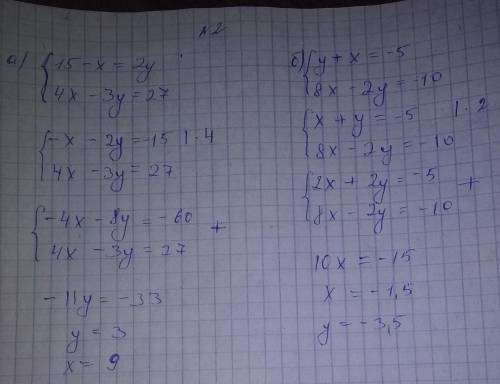 №2
а) { 15 - x = 2y
4x - 3y = 27
{ -x - 2y = -15 | · 4
4x - 3y = 27
{ -4x - 8y = -60
4x - 3y = 27 +
-11y = -33
y = 3
x = 9
б) { y + x = -5
8x - 2y = -10
{ x + y = -5 | · 2
8x - 2y = -10
{ 2x + 2y = -5
8x - 2y = -10 +
10x = -15
x = -1,5
y = -3,5